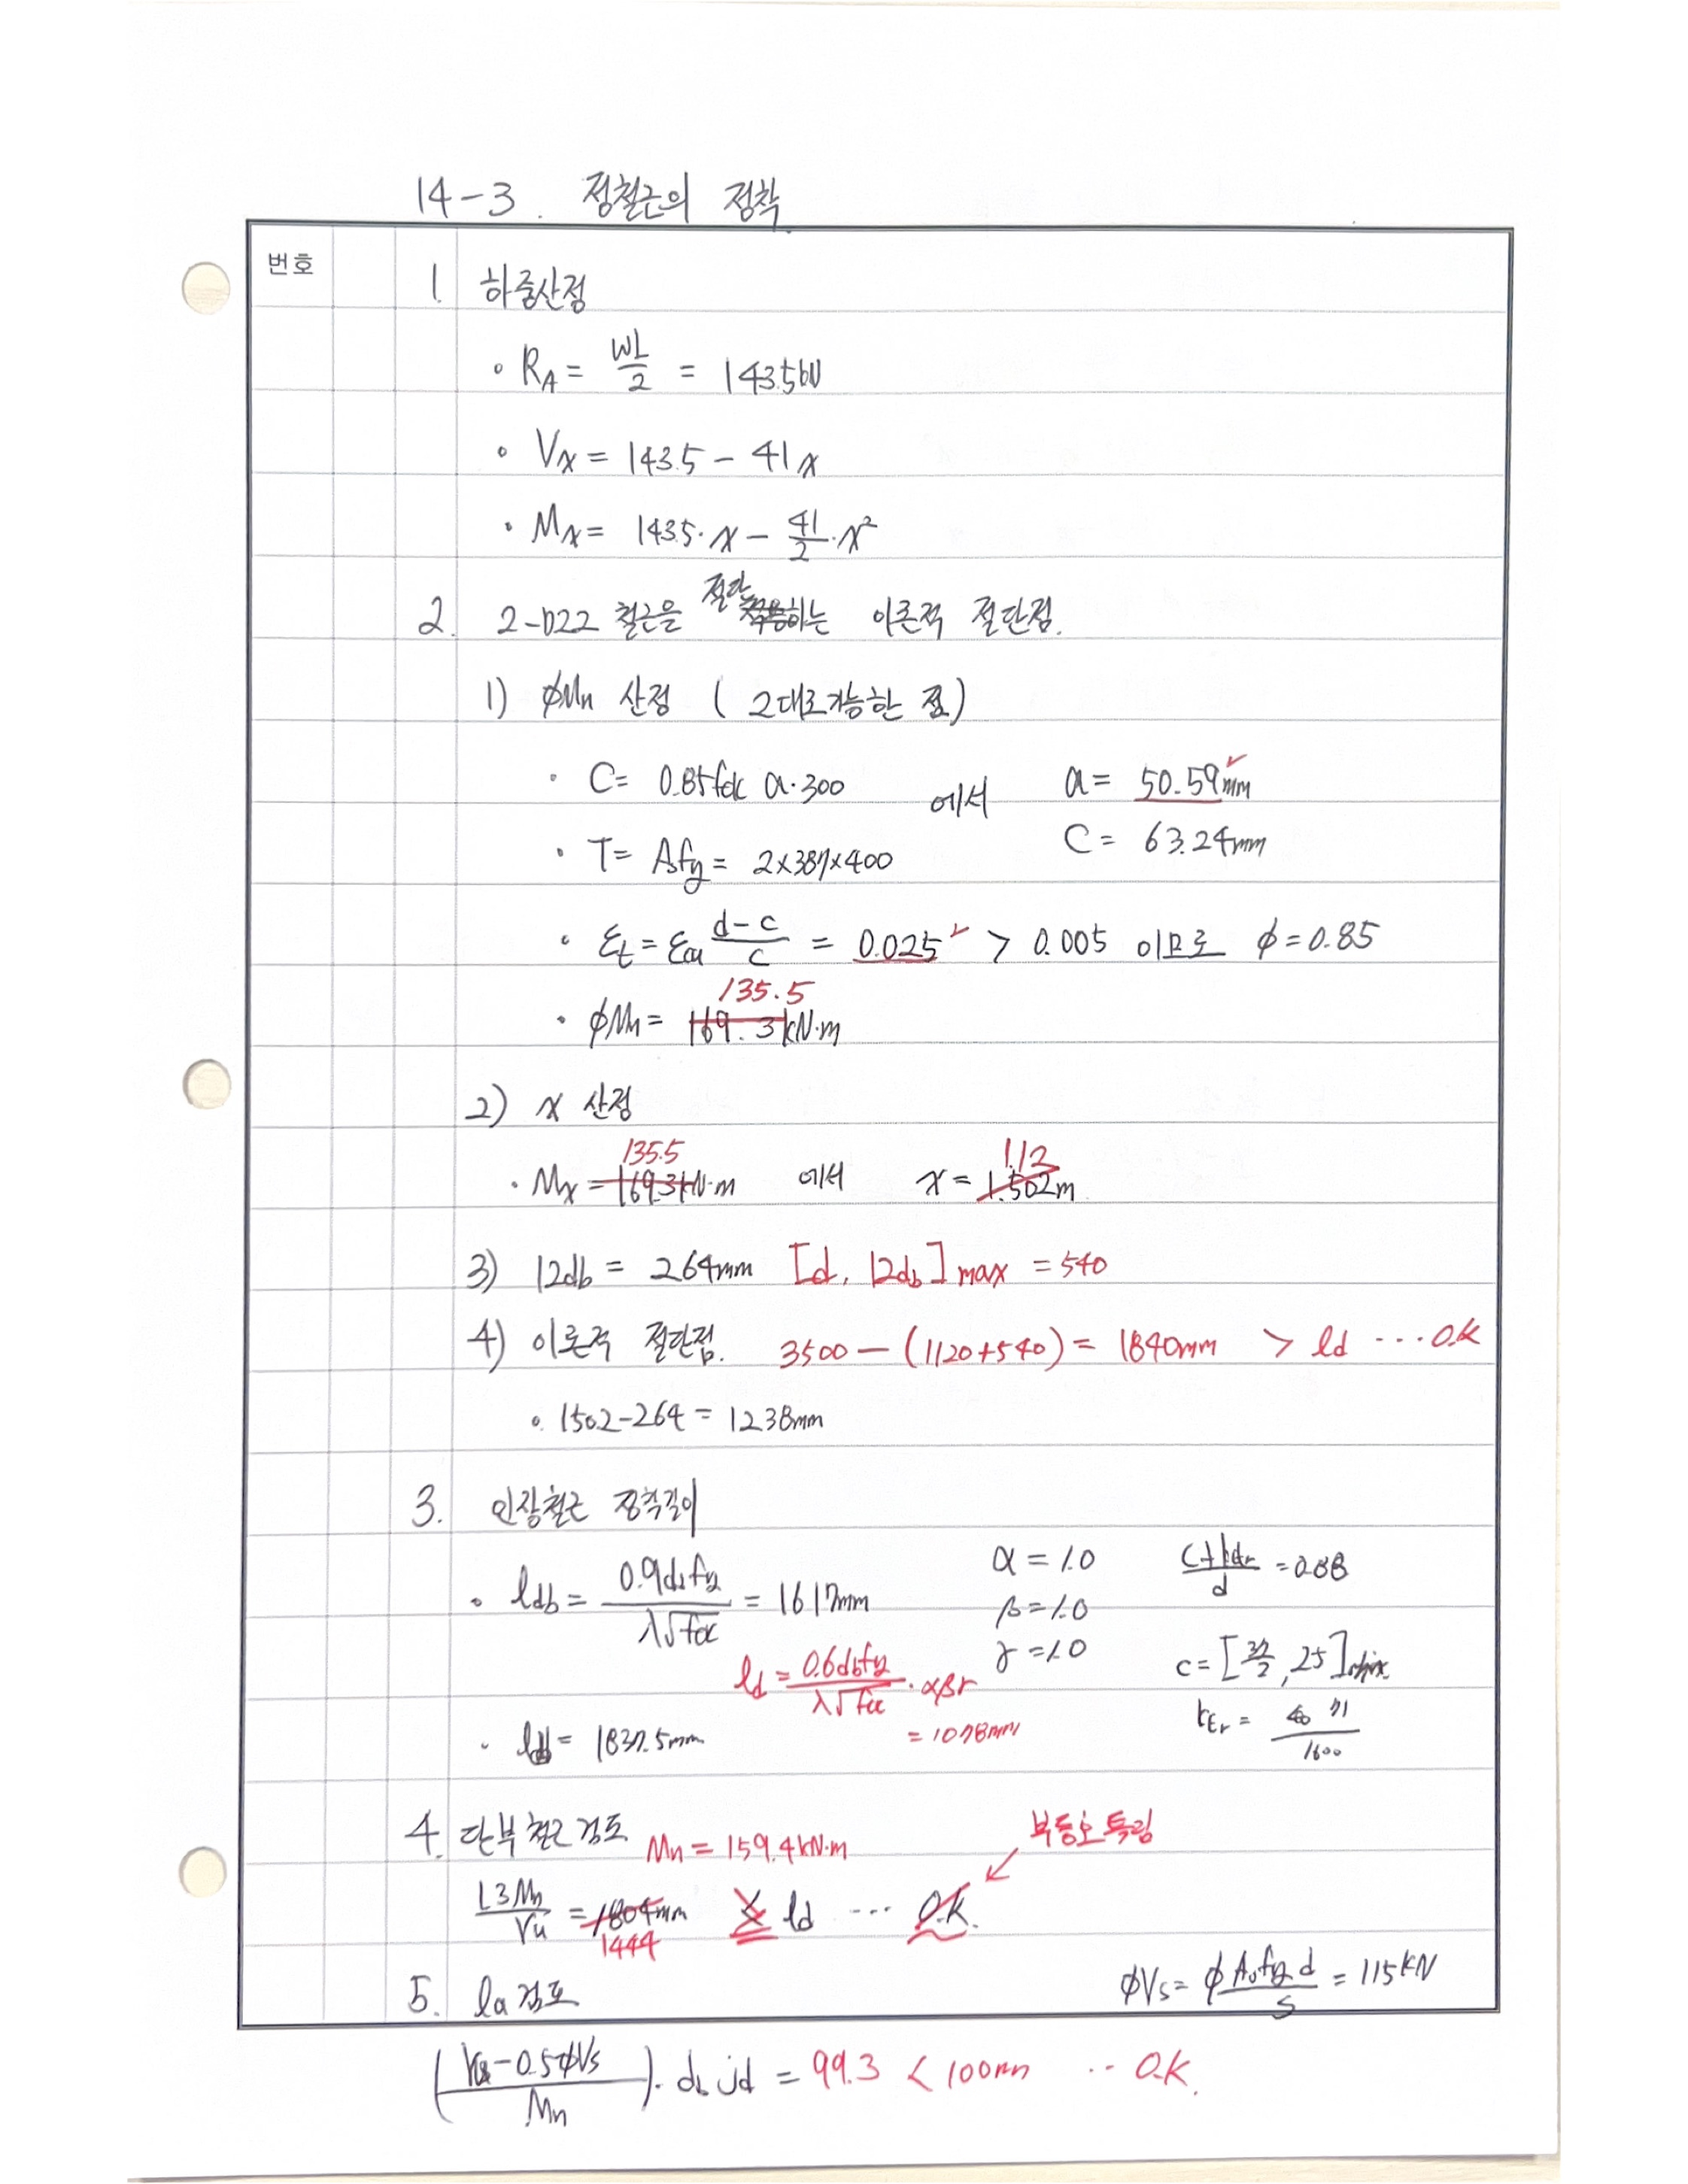 14-3. 정철근의 정착
번호
1. 하중산정
• R_A = WL/2 = 143.5kN
• Vx = 143.5 - 41x
• Mx = 143.5·x - 41/2·x²
2. 2-D22 철근을 절단하는 이론적 절단점.
1) φMn 산정 ( 2대로가능한 점)
• C = 0.85fck a·300 에서 a = 50.59mm ✓
• T = Asfy = 2×387×400 C = 63.24mm
• εt = εcu (d-c)/c = 0.025 ✓ > 0.005 이므로 φ = 0.85
135.5
• φMn = 169.3kN·m
2) x 산정
135.5 1.12
• Mx = 169.3kN·m 에서 x = 1.502m
3) 12db = 264mm [d, 12db]max = 540
4) 이론적 절단점. 3500 - (1120+540) = 1840mm > ld ··· O.K
• 1502-264 = 1238mm
3. 인장철근 정착길이
• ldb = 0.9dbfy/λ√fck = 1617mm α = 1.0 = 0.88
β = 1.0
γ = 1.0 c = [ /2, 25]min
ld = 0.6dbfy/λ√fck · αβγ
= 1078mm
ktr = /1600
• ld = 1837.5mm
4. 단부철근검토 Mn = 159.4kN·m 부등호 틀림
1.3Mn/Vu = 1804mm ld ··· O.K.
1444
5. la 검토 φVs = φ Avfy d/s = 115kN
(Vu-0.5φVs/Mn)· db jd = 99.3 < 100mm ·· O.K.